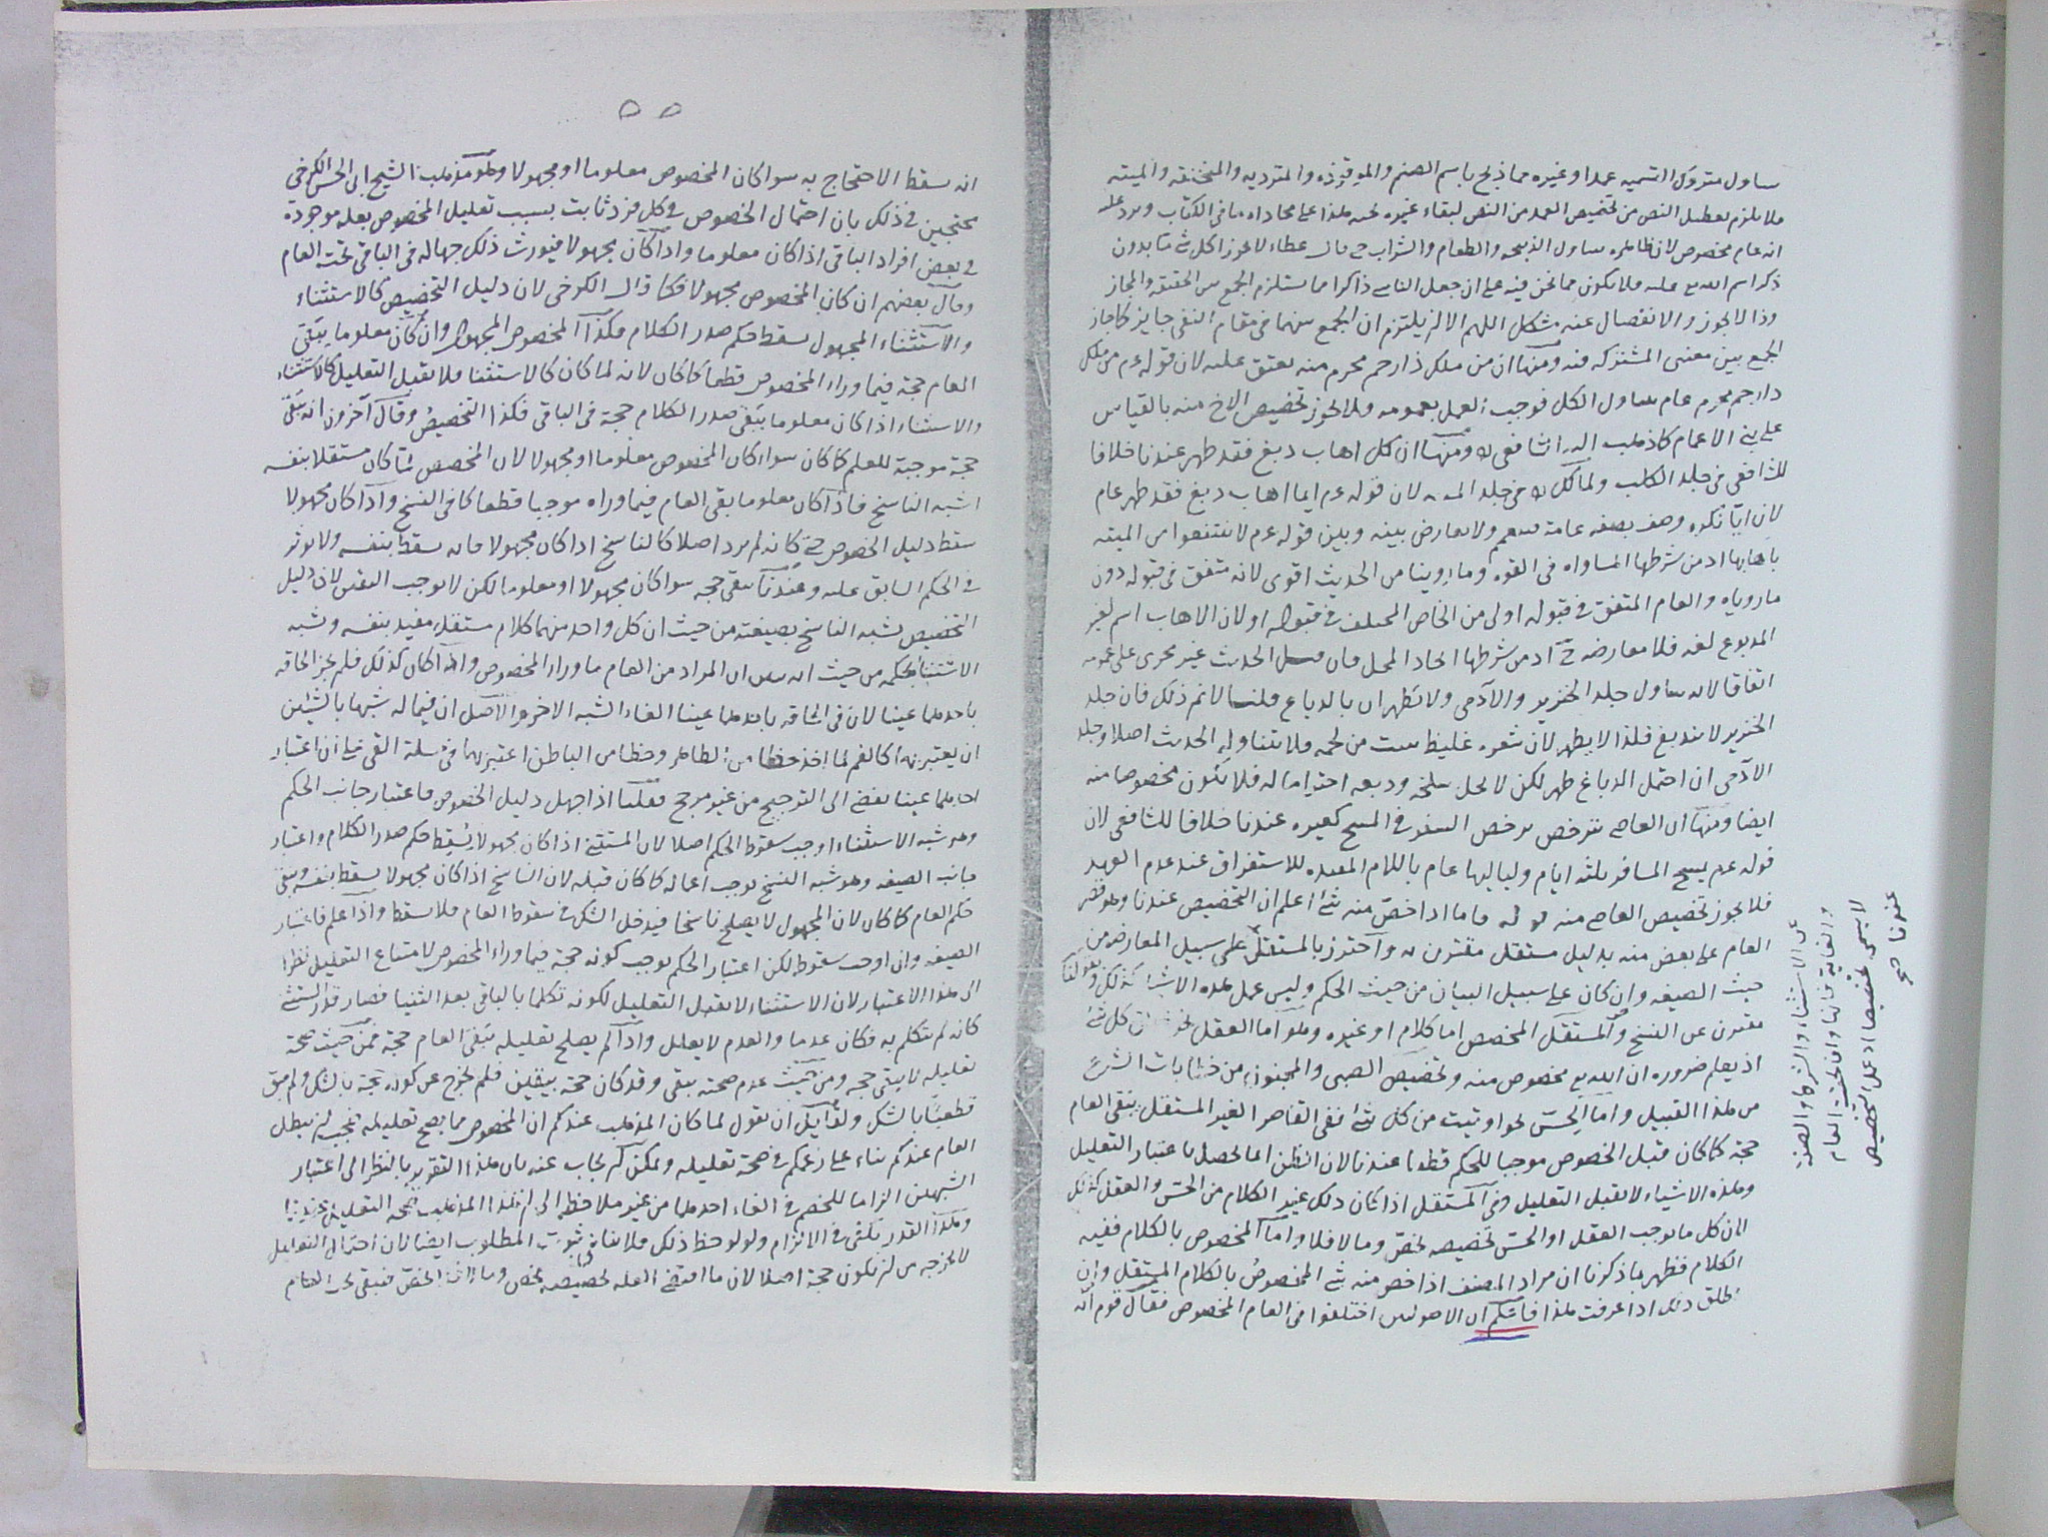 ساول متروك التسميه عمدا وغيره مما ذبح باسم الصنم والموقوذه والمترديه والمنخنقه والميته
فلا يلزم تعطيل النص من تخصيص العمد من النص لبقاء غيره تحته هذا على محاذاه ما فى الكتاب ويرد عليه
انه عام مخصوص لان ظاهره يتناول الذبيحه والطعام والشراب حتى قال عطاء لا يجوز اكل شئ بدون
ذكر اسم الله تع عليه فلا يكون مما نحن فيه على ان جعل الناسى ذاكرا مما يستلزم الجمع بين الحقيقه والمجاز
وذا لا يجوز والانفصال عنه مشكل اللهم الا ان يلتزم ان الجمع بينهما فى مقام النفى جايز كما جاز
الجمع بين معنى المشترك فيه ومنها ان من ملك ذا رحم محرم منه يعتق عليه لان قوله عم من ملك
ذا رحم محرم عام يتناول الكل فوجب العمل بعمومه ولا يجوز تخصيص الاخ منه بالقياس
على بنى الاعمام كما ذهب اليه الشافعى ومنها ان كل اهاب دبغ فقد طهر عندنا خلافا
للشافعى فى جلد الكلب ولمالك فى جلد الميته لان قوله عم ايما اهاب دبغ فقد طهر عام
لان ايا نكره وصف بصفه عامة فتعم ولا يعارض بينه وبين قوله عم لا تنتفعوا من الميته
باهابها اذ من شرطها المساواه فى القوه وما روينا من الحديث اقوى لانه متفق فى قبوله دون
ما رويناه والعام المتفق فى قبوله اولى من الخاص المختلف فى قبوله او لان الاهاب اسم لغير
المدبوغ لغه فلا معارضه ح اذ من شرطها اتحاد المحل فان قيل الحديث غير مجرى على عمومه
اتفاقا لانه يتناول جلد الخنزير والآدمى ولا يطهران بالدباغ قلنا لانم ذلك فان جلد
الخنزير لا يندبغ فلذا لا يطهر لان شعره غليظ ينبت من لحمه فلا يتناوله الحديث اصلا وجلد
الآدمى ان احتمل الدباغ طهر لكن لا يحل سلخه ودبغه احتراما له فلا يكون مخصوصا منه
ايضا ومنها ان العاصى يترخص برخص السفر فى المسح كغيره عندنا خلافا للشافعى لان
قوله عم يمسح المسافر ثلثه ايام ولياليها عام باللام المفيده للاستغراق عند عدم العهد
فلا يجوز تخصيص العاصى منه قوله فاما اذا خص منه شئ اعلم ان التخصيص عندنا هو قصر
العام على بعض منه بدليل مستقل مقترن به واحترز بالمستقل على سبيل المعارضه من
حيث الصيغه وان كان على سبيل البيان من حيث الحكم وليس عمل هذه الاشيا كذلك وبقولنا
مقترن عن النسخ والمستقل المخصص اما كلام او غيره وهو اما العقل كل شئ
اذ يعلم ضروره ان الله تع مخصوص منه وتخصيص الصبى والمجنون من خطابات الشرع
من هذا القبيل واما الحسّ نحو اوتيت من كل شئ ففى القاصر الغير المستقل يبقى العام
حجة كما كان قبل الخصوص موجبا للحكم قطعا عندنا لان الظن انما يحصل باعتبار التعليل
وهذه الاشياء لا تقبل التعليل وفى المستقل اذا كان ذلك غير الكلام من الحسّ والعقل كذلك
لان كل ما يوجب العقل او الحسّ تخصيصه يخصّ وما لا فلا واما المخصوص بالكلام ففيه
الكلام فظهر بما ذكرنا ان مراد المصنف اذا خص منه شئ المخصوص بالكلام المستقل وان
اطلق اذا عرفت هذا فاعلم ان الاصوليين اختلفوا فى العام المخصوص فقال قوم انه
عن الاستثناء والشرط والصفة
والغاية فانها وان لحقت العام
لا يسمى تخصيصا اذ عمل التخصيص
عندنا
٥٥
انه يسقط الاحتجاج به سوا كان المخصوص معلوما او مجهولا وهو مذهب الشيخ ابى الحسن الكرخى
محتجين فى ذلك بان احتمال الخصوص فى كل فرد ثابت بسبب تعليل المخصوص بعله موجودة
فى بعض افراد الباقى اذا كان معلوما واذا كان مجهولا فيورث ذلك جهاله فى الباقى تحت العام
وقال بعضهم ان كان المخصوص مجهولا فكما قال الكرخى لان دليل التخصيص كالاستثناء
والاستثناء المجهول يسقط حكم صدر الكلام فكذا المخصوص المجهول وان كان معلوما يبقى
العام حجة فيما وراء المخصوص قطعا كما كان لانه لما كان كالاستثنا فلا يقبل التعليل كالاستثناء
والاستثناء اذا كان معلوما يبقى صدر الكلام حجة فى الباقى فكذا التخصيص وقال آخرون انه يبقى
حجة موجبة للعلم كما كان سواء كان المخصوص معلوما او مجهولا لان المخصص لما كان مستقلا بنفسه
اشبه الناسخ فاذا كان معلوما بقى العام فيما وراه موجبا قطعا كما فى النسخ واذا كان مجهولا
سقط دليل الخصوص حتى كانه لم يرد اصلا كالناسخ اذا كان مجهولا فانه يسقط بنفسه ولا يوثر
فى الحكم السابق عليه وعندنا يبقى حجه سوا كان مجهولا او معلوما لكن لا يوجب اليقين لان دليل
التخصيص يشبه الناسخ بصيغته من حيث ان كل واحد منهما كلام مستقل مفيد بنفسه ويشبه
الاستثنا بحكمه من حيث انه يبين ان المراد من العام ما وراء المخصوص واذا كان كذلك فلم يجز الحاقه
باحدهما عينا لان فى الحاقه باحدهما عينا الغاء الشبه الاخر والاصل ان فيما له شبها بالشيئين
ان يعتبر بهما كالفم لما اخذ حظا من الظاهر وحظا من الباطن اعتبر بهما فى مسئلة القى على ان اعتبار
احدهما عينا يفضى الى الترجيح من غير مرجح فقلنا اذا جهل دليل الخصوص فاعتبار جانب الحكم
وهو شبه الاستثناء اوجب سقوط الحكم اصلا لان المستثنى اذا كان مجهولا يسقط حكم صدر الكلام واعتبار
جانب الصيغه وهو شبه النسخ يوجب اعماله كما كان قبله لان الناسخ اذا كان مجهولا يسقط بنفسه ويبقى
حكم العام كما كان لان المجهول لا يصلح ناسخا فيدخل الشك فى سقوط العام فلا يسقط واذا علم فاعتبار
الصيغه وان اوجب سقوطه لكن اعتبار الحكم يوجب كونه حجة فيما وراء المخصوص لامتناع التعليل نظرا
الى هذا الاعتبار لان الاستثناء لا يقبل التعليل لكونه تكلما بالباقى بعد الثنيا فصار قدر المستثنى
كانه لم يتكلم به فكان عدما والعدم لا يعلل واذا لم يصلح تعليله يبقى العام حجة فمن حيث صحة
تعليله لا يبقى حجه ومن حيث عدم صحته يبقى وقد كان حجة بيقين فلم يخرج عن كونه حجة بالشك ولم يبق
قطعيا بالشك ولقايل ان يقول لما كان المذهب عندكم ان المخصوص مما يصح تعليله فيجب ان يبطل
العام عندكم بناء على زعمكم فى صحة تعليله ويمكن ان يجاب عنه بان هذا التقرير بالنظر الى اعتبار
الشبهين الزاما للخصم فى الغاء احدهما من غير ملاحظه الى ان هذا المذهب صحه التعليل
وهذا القدر يكفى فى الالزام ولو لوحظ ذلك فلا ينافى ثبوت المطلوب ايضا لان احتمال التعليل
لا يخرجه من ان يكون حجة اصلا لان ما اقتضى العله تخصيصه يخص وما لا فلا يخص فيبقى تحت العام